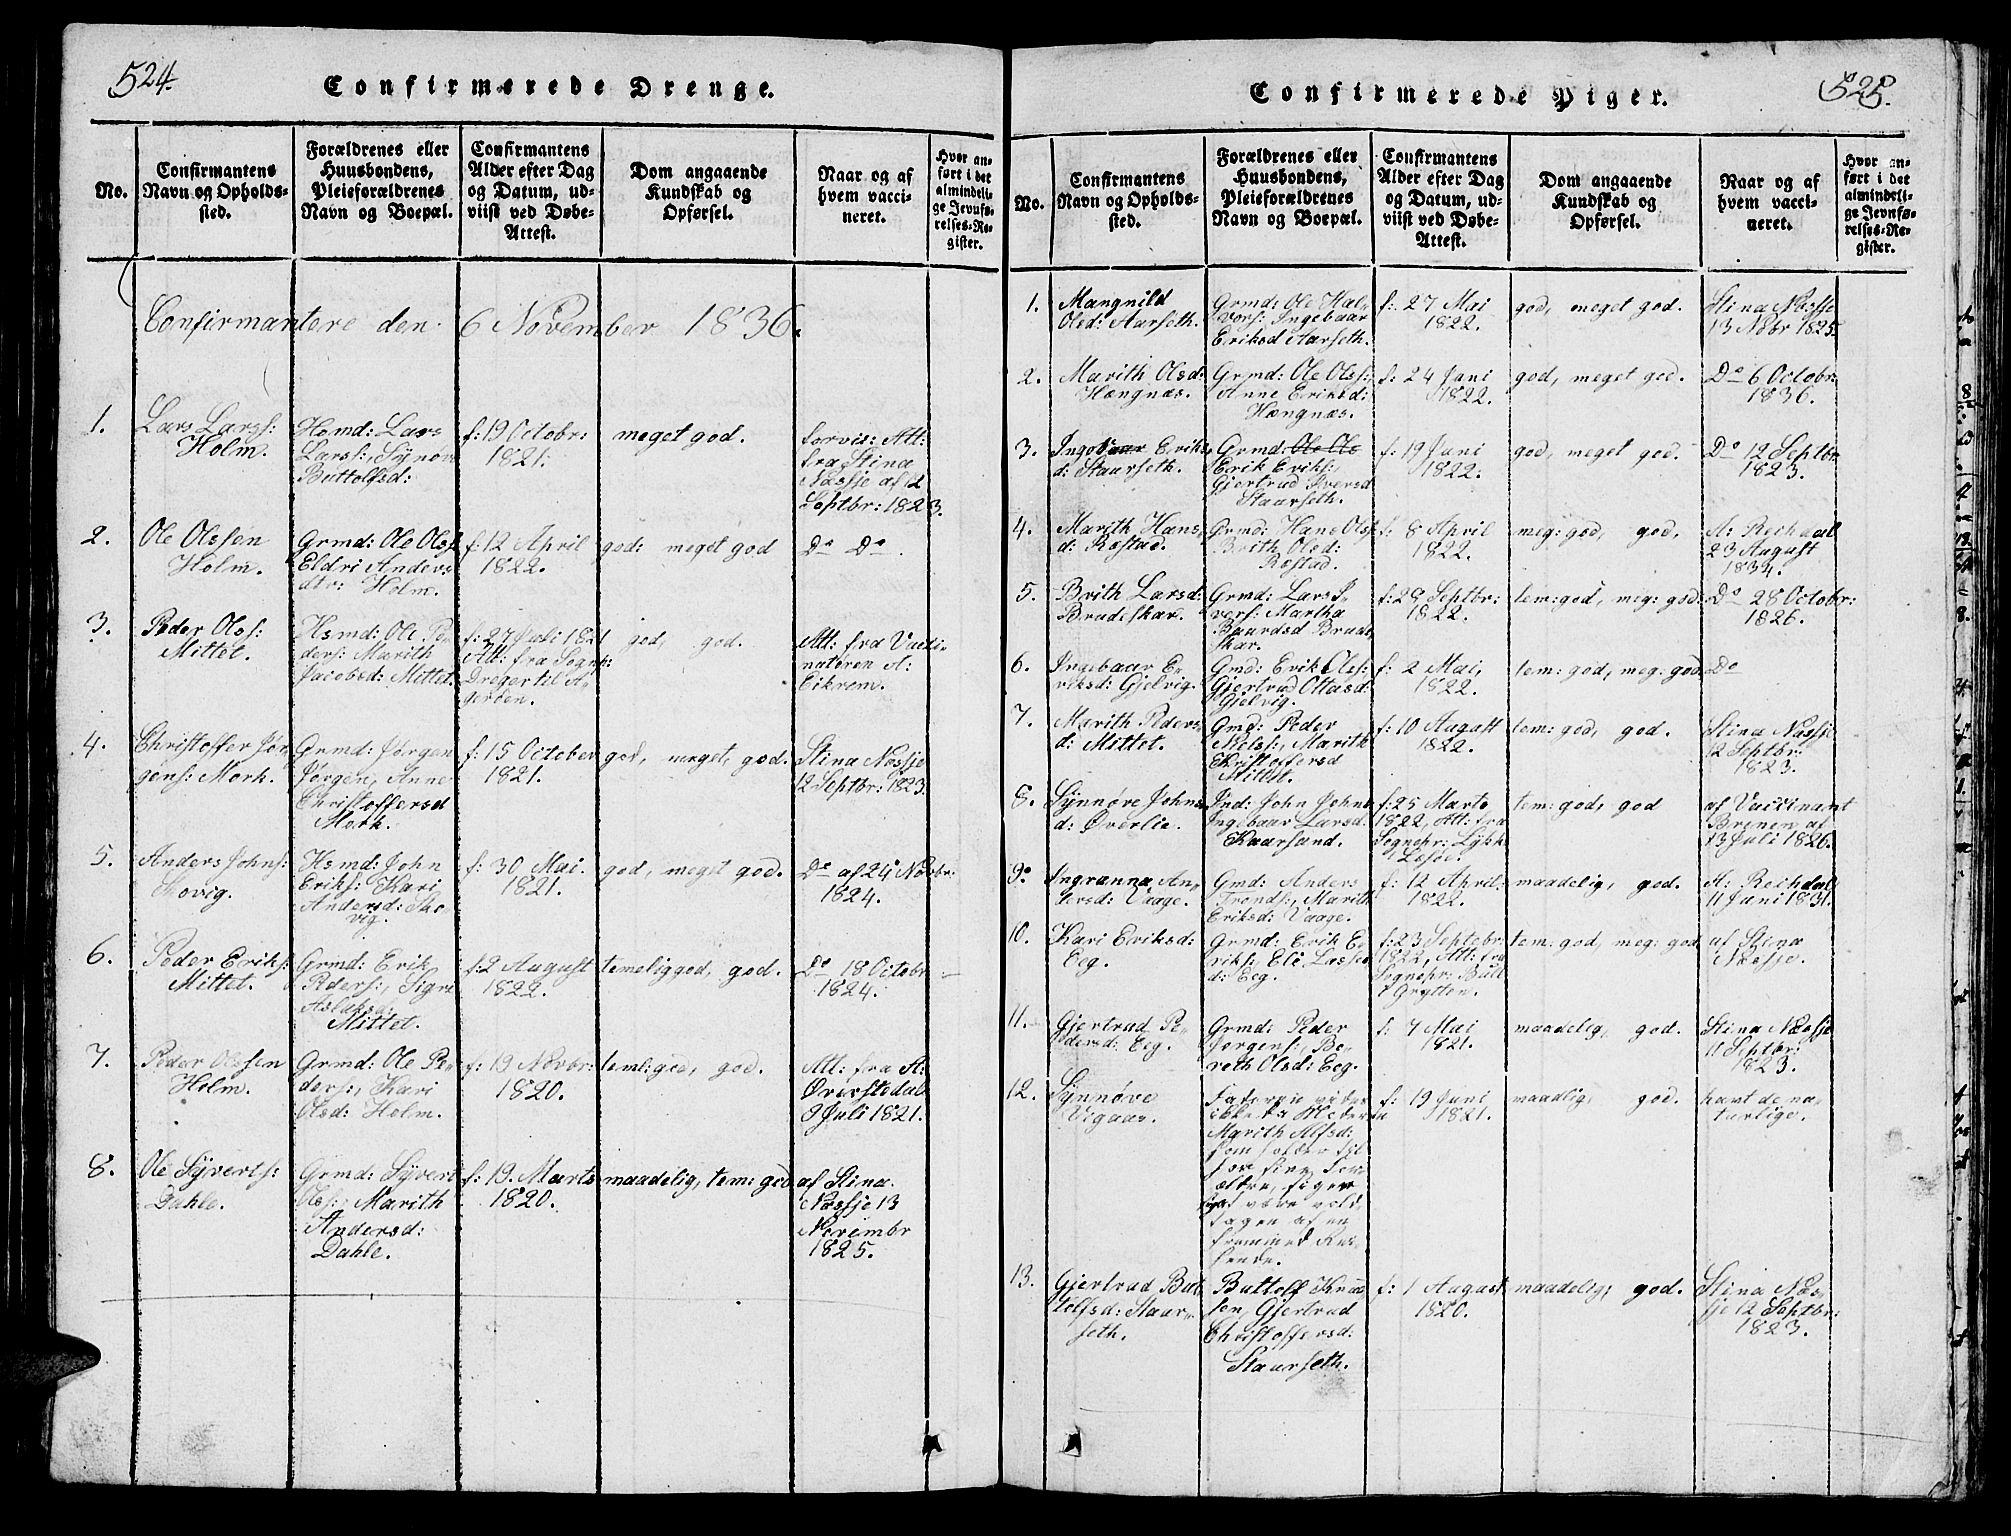 524.
Confirmerede Drenge.
No.
Confirmantens
Navn og Opholds-
sted.
Forældrenes eller
Huusbondens,
Pleieforældrenes
Navn og Boepæl.
Confirmantens
Alder efter Dag
og Datum, ud-
viist ved Døbe-
Attest.
Dom angaaende
Kundskab og
Opførsel.
Naar og af
hvem vacci-
neret.
Hvor an-
ført i det
almindeli-
ge Jevnfø-
relses-Re-
gister.
Confirmantere den 6 November 1836.
1.
Lars Larss:
Holm.
Hsmd: Lars
Larss:, Synøv
Buttolfsd:
f: 19 Octobr:
1821.
meget god.
forvis: Att:
fra Stina
Næsje af 12
Septbr: 1823.
2.
Ole Olssen
Holm.
Grmd: Ole Olss
Eldri Anders
dtr: Holm.
f: 12 April
1822.
god: meget god
Do Do.
3.
Peder Olss:
Mittet.
Hsmd: Ole Pe-
ders: Marith
Jacobsd: Mittet.
f: 27 Juli 1821
Att: fra Sognpr:
Dreger til A-
gerøen.
god, god.
Att: fra Vacci-
natøren A:
Eikrem.
4.
Christoffer Jør-
gens: Mork.
Grmd: Jørgen
Jørgen, Anne
Christoffersd
Mork.
f: 15 October
1821.
god, meget, god.
Stina Næsje
12 Septbr: 1823.
5.
Anders Johns:
Hovig.
Hsmd: John
Eriks: Kari
Andersd: Ho-
vig.
f: 30 Mai.
1821.
god, meget god.
Do af 24 Novbr:
1824.
6.
Peder Eriks:
Mittet.
Grmd: Erik
Peders:, Sigri
Aslaksd:
Mittet.
f: 2 August
1822.
temelig god, god.
Do 18 Octobr:
1824.
7.
Peder Olssen
Holm.
Grmd: Ole Pe-
ders:, Kari
Olsd: Holm.
f: 19 Novbr:
1820.
teml: god, god.
Att: fra A:
Øverstedal
9 Juli 1821.
8.
Ole Syverts:
Dahle.
Grmd: Syvert
Olss: Marith
Andersd:
Dahle.
f: 19. Marts
1820.
maadelig, tem: god
af Stina
Næssje 13
Novembr
1825.
525.
Confirmerede Piger.
No.
Confirmantens
Navn og Opholds-
sted.
Forældrenes eller
Huusbondens,
Pleieforældrenes
Navn og Boepæl.
Confirmantens
Alder efter Dag
og Datum, ud-
viist ved Døbe-
Attest.
Dom angaaende
Kundskab og
Opførsel.
Naar og af
hvem vacci-
neret.
Hvor an-
ført i det
almindeli-
ge Jevnfø-
relses-Re-
gister.
1.
Mangnild
Olsd: Aarseth.
Grmd: Ole Hal-
vors: Ingebaar
Eriksd Aarseth.
f: 27 Mai
1822.
god, meget god.
Stina Næssje
13 Nobr 1825.
2.
Marith Olsd:
Hængnæs.
Grmd: Ole Olss:,
Anne Eriksd:
Hængnæs.
f: 24 Juni
1822.
god, meget god.
Do 6 Octobr:
1836.
3.
Ingebaar Eriks
d: Staarseth.
Grmd: Ole Ole
Erik Eriks:
Gjertrud Iversd
Staarseth.
f: 19 Juni
1822.
god, meget god.
Do 12 Septbr
1823.
4.
Marith Hans,
d: Røstad.
Grmd: Hans Olss
Brith Olsd:
Røstad.
f: 8 April
1822.
meg: god, god,
A: Reichdal
23 August
1834.
5.
Brith Larsd:
Brudeskar.
Grmd: Lars I-
vers: Martha
Baardsd Brude
skar.
f: 29 Septbr:
1822.
tem: god, meg: god.
Do 28 Octobr:
1826.
6.
Ingebaar E-
riksd: Gjelvig.
Gmd: Erik Olss:
Gjertrud Ottasd:
Gjelvig.
f: 2 Mai,
1822.
tem: god, meg: god.
Do
7.
Marith Peders
d: Mittet.
Gmd: Peder
Niels:, Marith
Christoffersd
Mittet.
f: 10 August
1822.
tem: god, god.
Stina Næssje
12 Septbr:
1823.
8.
Synnøve Johns
d: Øverlie.
Ind: John Johns
Ingebaar Larsd.
Kaarsand.
f: 25 Marts
1822, Att: fra
Sognepr: Lysk
Lesøe.
tem: god, god
af Vaccinant
Brenen af
13 Juli 1826.
9.
Ingranna An-
dersd: Vaage.
Gmd: Anders
Tronds:, Marith
Eriksd: Vaage.
f: 12 April:
1822.
maadelig, god.
A: Reichdal
11 Juni 1831.
10.
Kari Eriksd:
Eeg.
Grmd: Erik E-
riks: Eli Lasses
d: Eeg.
f: 23 Septebr:
1822, Att: fra
Sognepr: Bull
i Grytten.
tem: god, meg: god
af Stina
Næssje.
11.
Gjertrud Pe-
dersd: Eeg.
Grmd: Peder
Jørgens:, Be-
reth Olsd: Eeg.
f: 7 Mai
1821.
maadelig, god.
Stina Næssje
11 Septbr:
1823.
12.
Synnøve
Vigaas.
Marith Alfsd:
som holder til
hos sine For-
ældre, siger
at være vold-
tagen af en
fremmed Rei-
sende.
f: 19 Juni
1821.
maadlig, god.
havt de na-
turlige.
13.
Gjertrud But
tolfsd: Staar-
seth.
Buttolf Knud
sen, Gjertrud
Christoffersd:
Staarseth.
f: 1 August
1820.
maadelig, god.
Stina Næs-
sje 12 Septbr:
1823.